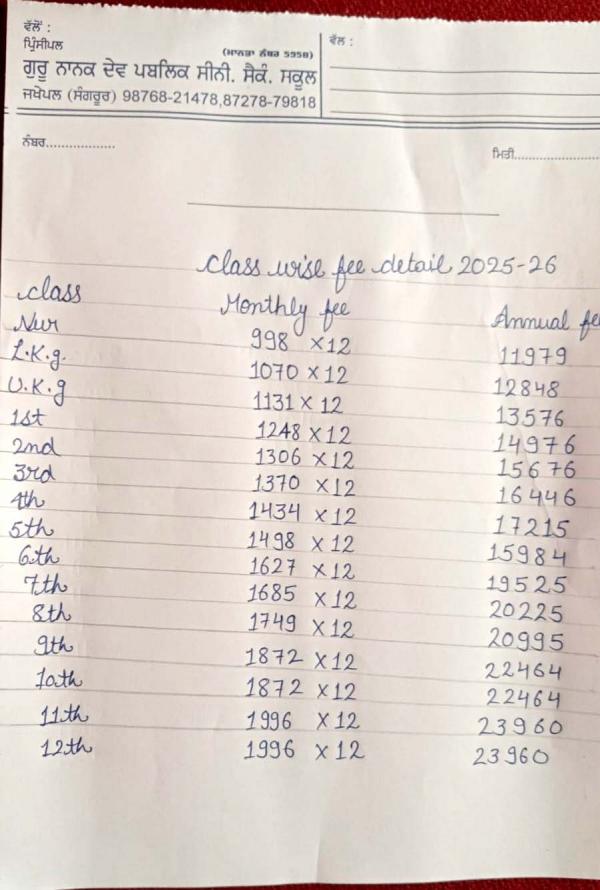 ਵੱਲੋਂ :
ਪ੍ਰਿੰਸੀਪਲ
(ਮਾਨਤਾ ਨੰਬਰ 5958)
ਗੁਰੂ ਨਾਨਕ ਦੇਵ ਪਬਲਿਕ ਸੀਨੀ. ਸੈਕੰ. ਸਕੂਲ
ਜਖੇਪਲ (ਸੰਗਰੂਰ) 98768-21478,87278-79818
ਵੱਲ :
ਨੰਬਰ.................. ਮਿਤੀ......................
Class wise fee detail 2025-26
class Monthly fee Annual fee
Nur 998 ×12 11979
L.K.g. 1070 ×12 12848
U.K.g 1131 ×12 13576
1st 1248 ×12 14976
2nd 1306 ×12 15676
3rd 1370 ×12 16446
4th 1434 ×12 17215
5th 1498 ×12 15984
6th 1627 ×12 19525
7th 1685 ×12 20225
8th 1749 ×12 20995
9th 1872 ×12 22464
10th 1872 ×12 22464
11th 1996 ×12 23960
12th 1996 ×12 23960